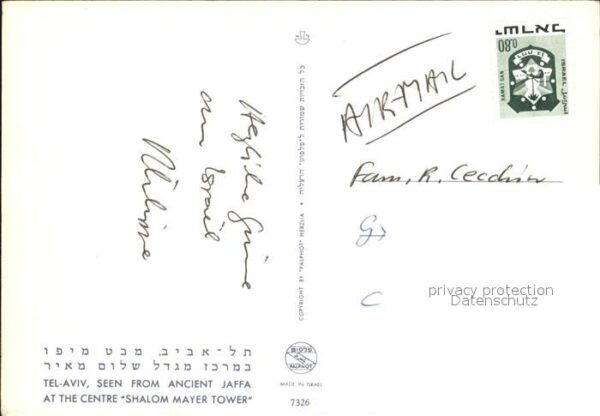 Herzliche Grüsse
aus Israel
AIRMAIL
0.80
ISRAEL
RAMAT GAN
Fam. R. Cecchin
G
C
privacy protection
Datenschutz
כל הזכויות שמורות ל"פלפוט" הרצליה • COPYRIGHT BY "PALPHOT" HERZLIA
תל-אביב, מבט מיפו
במרכז מגדל שלום מאיר
TEL-AVIV, SEEN FROM ANCIENT JAFFA
AT THE CENTRE "SHALOM MAYER TOWER"
פלפוט
PALPHOT
MADE IN ISRAEL
7326